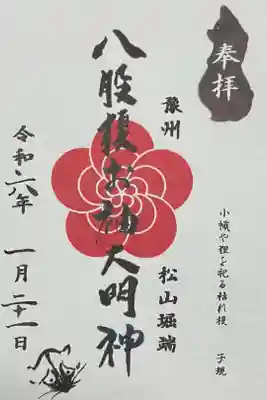 奉拝
豫州
松山堀端
小幟や狸を祀る枯れ榎
子規
八股榎お袖大明神
令和六年
一月二十一日